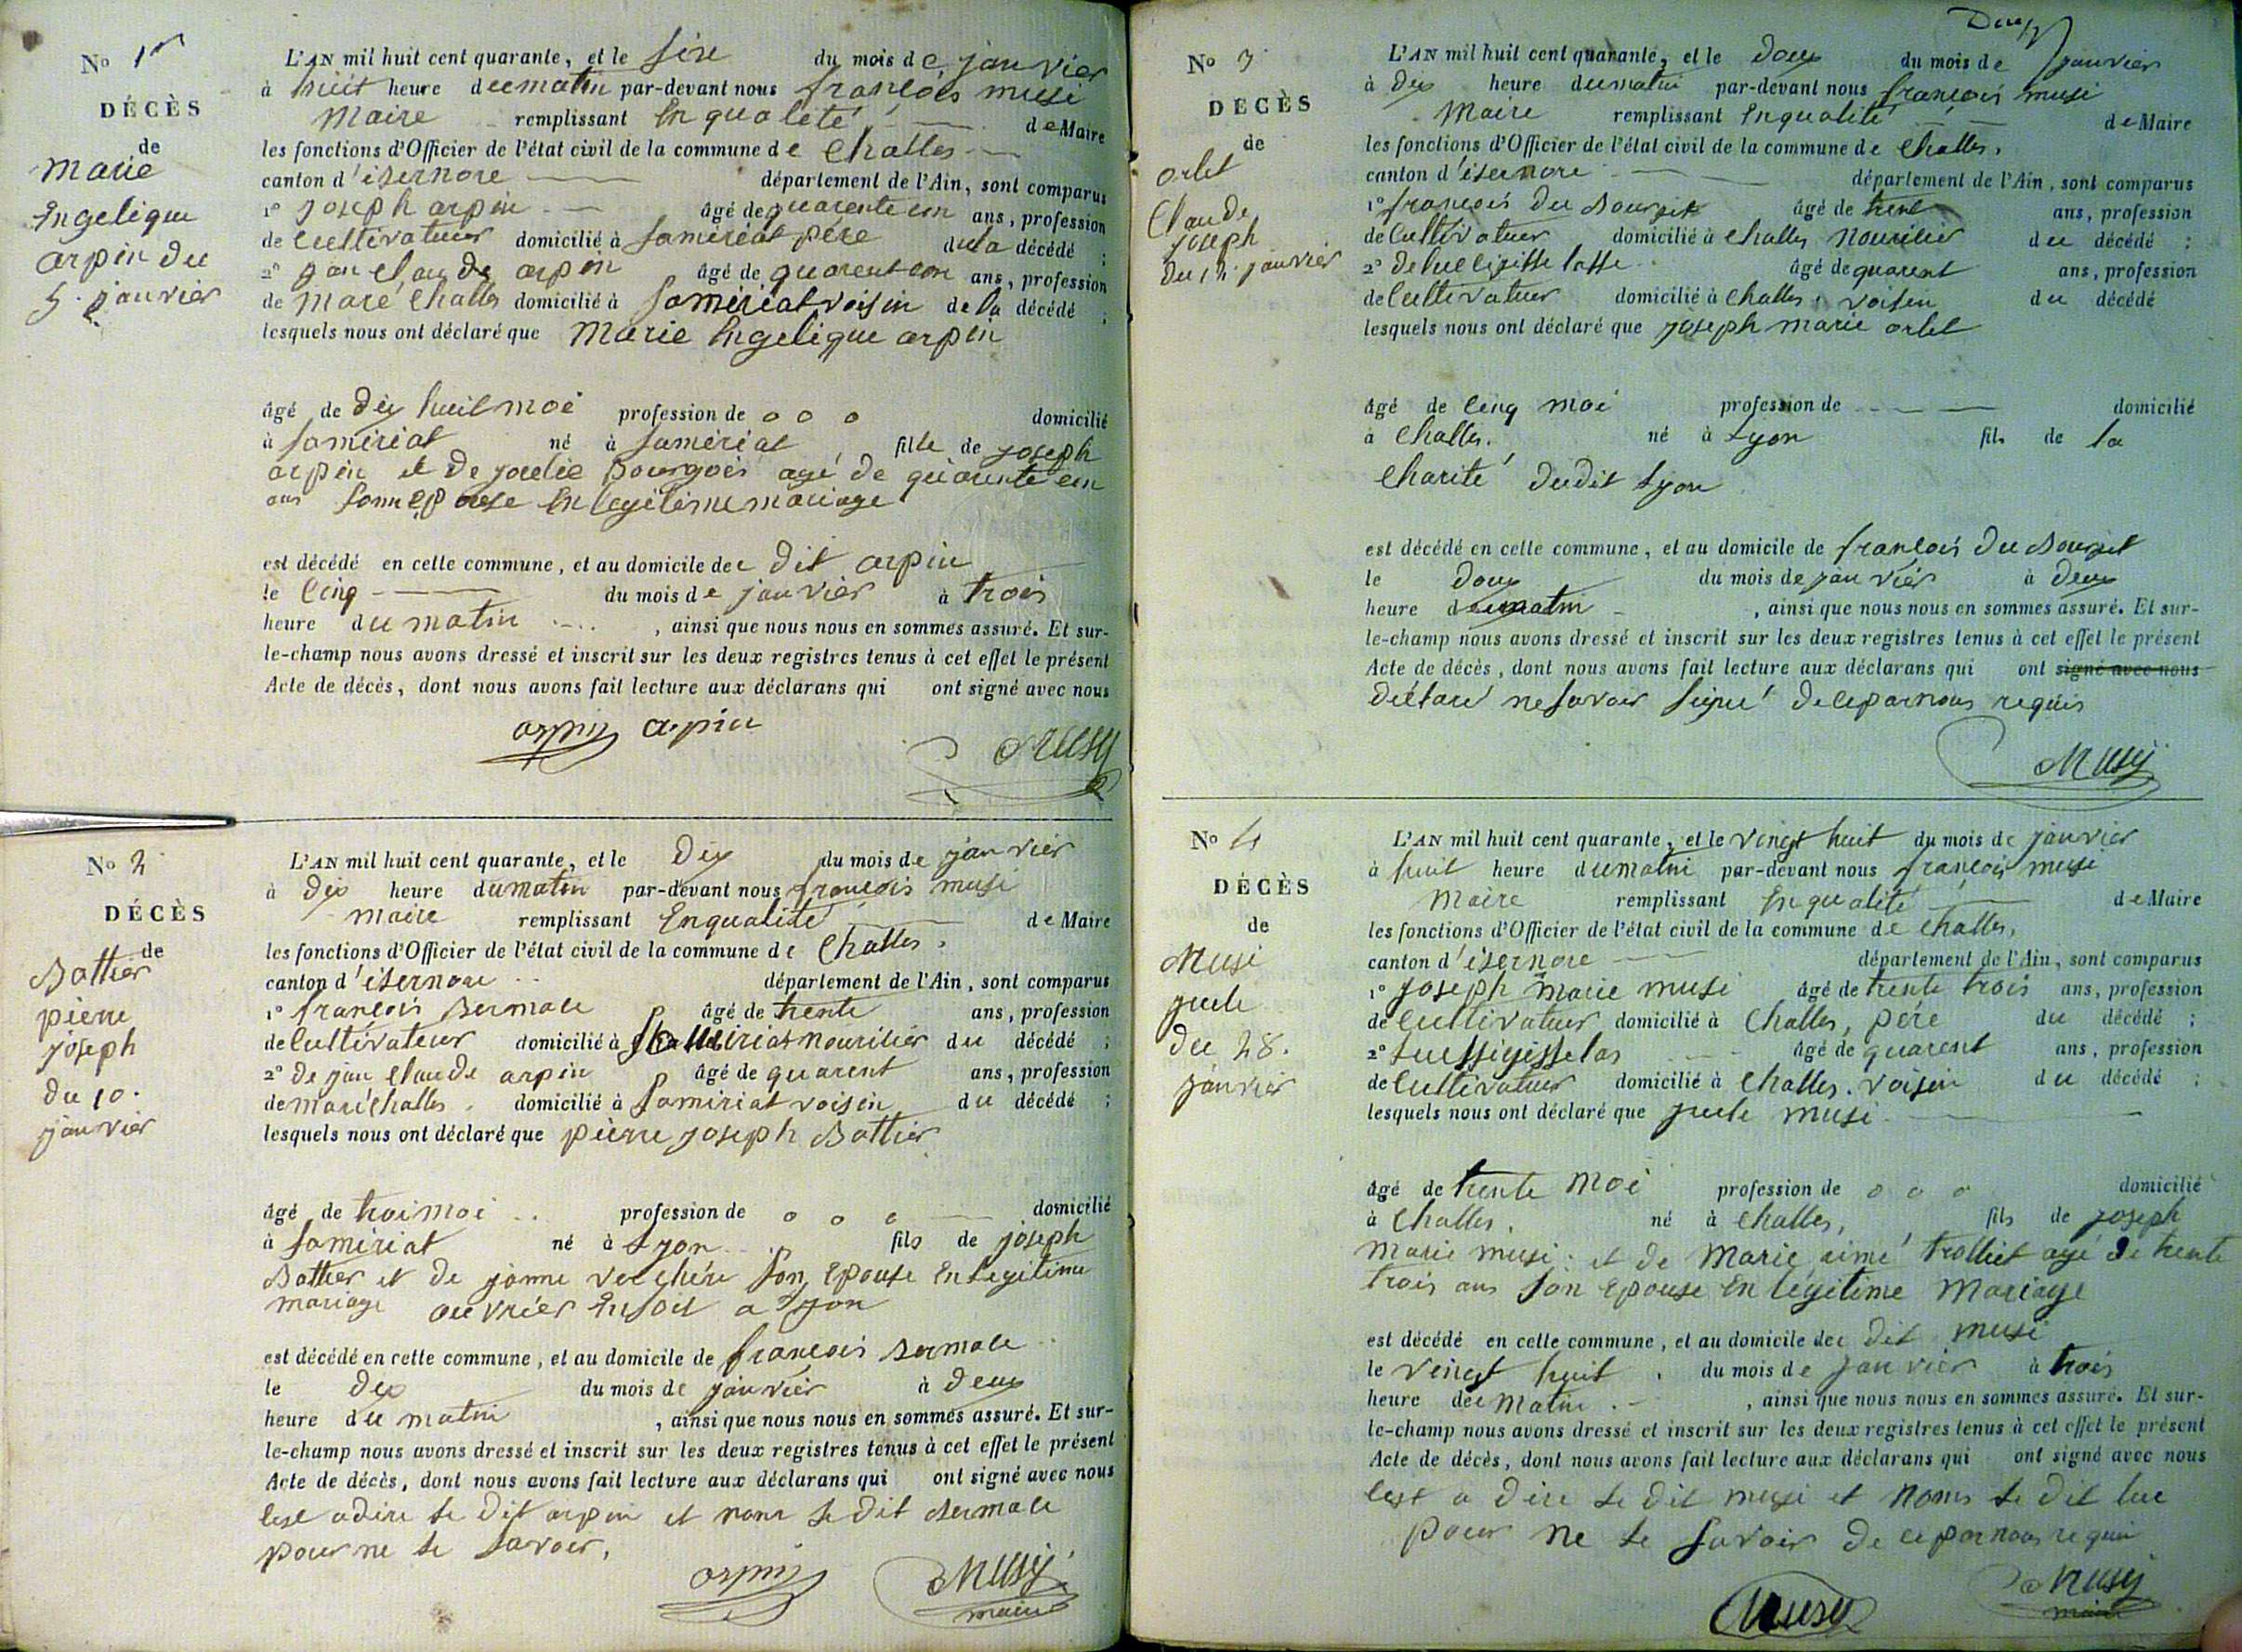 No 1er
DÉCÈS
de
Marie
Engelique
arpin du
5. janvier
L'AN mil huit cent quarante, et le sixe du mois de janvier
à huit heure du matin par-devant nous françois musi
Maire remplissant En qualeté de Maire
les fonctions d'Officier de l'état civil de la commune de Challes
canton d'isernore département de l'Ain, sont comparus
1° joseph arpin âgé de quarente un ans, profession
de cultivateur domicilié à samiriat père du la décédé ;
2° jan claude arpin âgé de quarent un ans, profession
de maréchalles domicilié à samiriat voisin de la décédé ;
lesquels nous ont déclaré que Marie Engelique arpin
âgé de dix huit moi profession de o o o domicilié
à samiriat né à samériat fille de joseph
arpin et de joulie Bourgois agé de quarente un
ans sonn epouse En legitime mariage
est décédé en cette commune, et au domicile du dit arpin
le cinq du mois de janvier à trois
heure du matin , ainsi que nous nous en sommes assuré. Et sur-
le-champ nous avons dressé et inscrit sur les deux registres tenus à cet effet le présent
Acte de décès, dont nous avons fait lecture aux déclarans qui ont signé avec nous
arpin arpin Musy
No 2
DÉCÈS
de
Bottier
pierre
joseph
du 10.
janvier
L'AN mil huit cent quarante, et le dix du mois de janvier
à dix heure du matin par-devant nous françois musi
maire remplissant En qualité de Maire
les fonctions d'Officier de l'état civil de la commune de Challes.
canton d'isernore département de l'Ain, sont comparus
1° françois Bermale âgé de trente ans, profession
de cultivateur domicilié à samiriat nourilier du décédé ;
2° de jan claude arpin âgé de quarent ans, profession
de maréchalles domicilié à samiriat voisin du décédé ;
lesquels nous ont déclaré que pierre joseph Bottier
âgé de troi moi profession de o o o domicilié
à samiriat né à Lyon fils de joseph
Bottier et de janne verchére son Epouse En legitime
mariage ouvriér En soit a Lyon
est décédé en cette commune, et au domicile de françois Bermale
le dix du mois de janvier à deux
heure du matin , ainsi que nous nous en sommes assuré. Et sur-
le-champ nous avons dressé et inscrit sur les deux registres tenus à cet effet le présent
Acte de décès, dont nous avons fait lecture aux déclarans qui ont signé avec nous
cest adire le dit arpin et nonn le dit Bermale
pour ne le savoir,
arpin Musy
maire
No 3
DÉCÈS
de
orlet
Claude
joseph
du 12. janvier
L'AN mil huit cent quarante, et le doux du mois de janvier
à dix heure du matin par-devant nous françois musi
Maire remplissant En qualité de Maire
les fonctions d'Officier de l'état civil de la commune de Challes.
canton d'isernore département de l'Ain, sont comparus
1° françois du Bourget âgé de trent ans, profession
de cultivateur domicilié à Challes nourilier du décédé ;
2° âgé de quarent ans, profession
de cultivateur domicilié à Challes, voisin du décédé
lesquels nous ont déclaré que joseph marie orlet
âgé de cinq moi profession de domicilié
à Challes. né à Lyon fils de la
charité dudit Lyon
est décédé en cette commune, et au domicile de françois du Bourget
le doux du mois de janvier à deux
heure du matin , ainsi que nous nous en sommes assuré. Et sur-
le-champ nous avons dressé et inscrit sur les deux registres tenus à cet effet le présent
Acte de décès, dont nous avons fait lecture aux déclarans qui ont signé avec nous
déclaré ne savoir signé de ce par nous requis
Musy
No 4
DÉCÈS
de
Musi
jule
du 28.
janvier
L'AN mil huit cent quarante, et le vingt huit du mois de janvier
à huit heure du matin par-devant nous françois musi
Maire remplissant En qualité de Maire
les fonctions d'Officier de l'état civil de la commune de Challes,
canton d'isernore département de l'Ain, sont comparus
1° joseph marie musi âgé de trente trois ans, profession
de cultivateur domicilié à Challes, père du décédé ;
2° âgé de quarent ans, profession
de cultivateur domicilié à Challes. voisin du décédé ;
lesquels nous ont déclaré que jule musi
âgé de trente moi profession de o o o domicilié
à Challes. né à Challes, fils de joseph
marie musi et de Marie aimé trolliet agé de trente
trois ans son Epouse En légitime Mariage
est décédé en cette commune, et au domicile du dit musi
le vingt huit du mois de janvier à trois
heure du matin , ainsi que nous nous en sommes assuré. Et sur-
le-champ nous avons dressé et inscrit sur les deux registres tenus à cet effet le présent
Acte de décès, dont nous avons fait lecture aux déclarans qui ont signé avec nous
cest a dire le dit musi et nonn le dit luc
pour ne le savoir de ce par nous requi
Musy Musy
maire